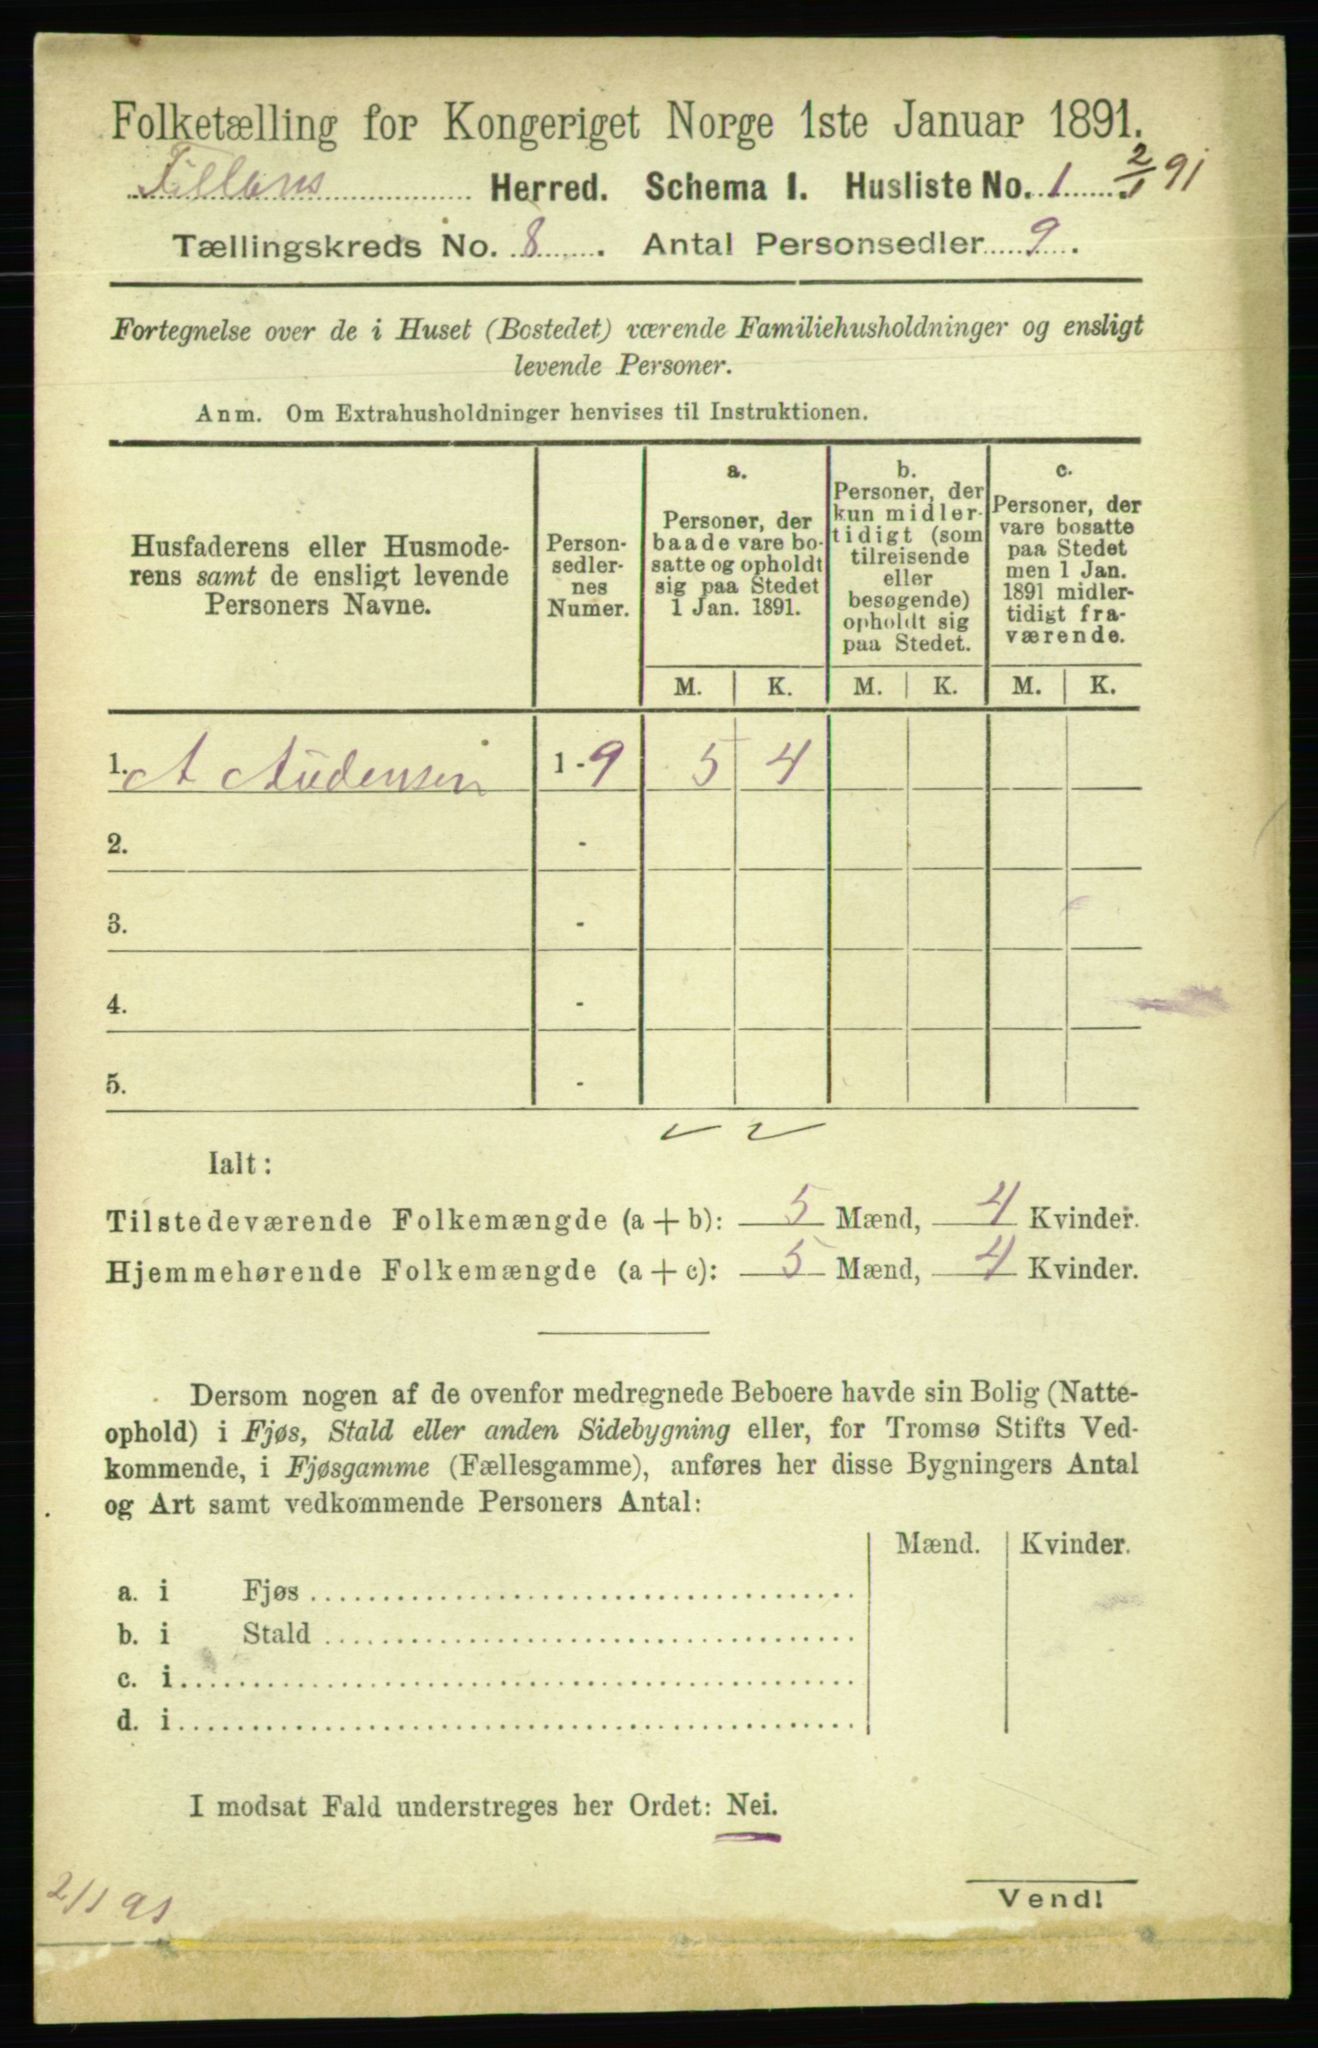 Folketælling for Kongeriget Norge 1ste Januar 1891.
Fillans Herred. Schema 1. Husliste No. 1. 2/1 91
Tællingskreds No. 8. Antal Personsedler 9.
Fortegnelse over de i Huset (Bostedet) værende Familiehusholdninger og ensligt
levende Personer.
Anm. Om Extrahusholdninger henvises til Instruktionen.
Husfaderens eller Husmode-
rens samt de ensligt levende
Personers Navne.
Person-
sedler-
nes
Numer.
a.
Personer, der
baade vare bo-
satte og opholdt
sig paa Stedet
1 Jan. 1891.
b.
Personer, der
kun midler-
tidigt (som
tilreisende
eller
besøgende)
opholdt sig
paa Stedet.
c.
Personer, der
vare bosatte
paa Stedet
men 1 Jan.
1891 midler-
tidigt fra-
værende.
M. K. M. K. M. K.
1. A Audensen 1-9 5 4
2. -
3. -
4. -
5. -
Ialt:
Tilstedeværende Folkemængde (a + b): 5 Mænd, 4 Kvinder.
Hjemmehørende Folkemængde (a + c): 5 Mænd, 4 Kvinder.
Dersom nogen af de ovenfor medregnede Beboere havde sin Bolig (Natte-
ophold) i Fjøs, Stald eller anden Sidebygning eller, for Tromsø Stifts Ved-
kommende, i Fjøsgamme (Fællesgamme), anføres her disse Bygningers Antal
og Art samt vedkommende Personers Antal:
Mænd. Kvinder.
a. i Fjøs
b. i Stald
c. i
d. i
I modsat Fald understreges her Ordet: Nei.
Vend!
2/1 91